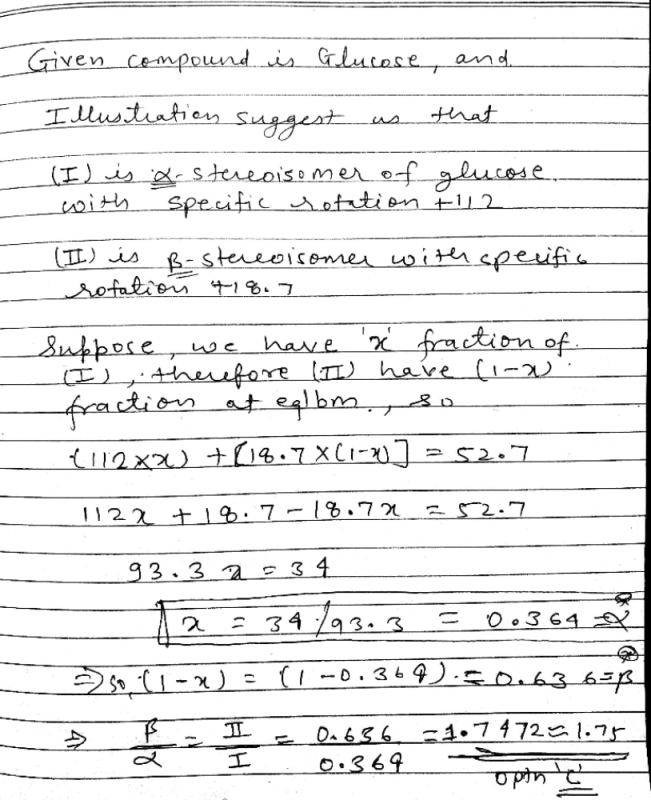 Given compound is Glucose, and
Illustration suggest us that
(I) is α-stereoisomer of glucose
with specific rotation +112
(II) is β-stereoisomer with specific
rotation +18.7
Suppose, we have 'x' fraction of
(I), therefore (II) have (1-x)
fraction at eqlbm., so
(112×x) + [18.7×(1-x)] = 52.7
112x + 18.7 - 18.7x = 52.7
93.3 x = 34
x = 34/93.3 = 0.364 = α
⇒ so, (1-x) = (1-0.364) = 0.636 = β
⇒ β/α = II/I = 0.636/0.364 = 1.7472 ≈ 1.75
optn 'c'